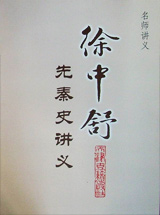 名师讲义
徐中舒
先秦史讲义